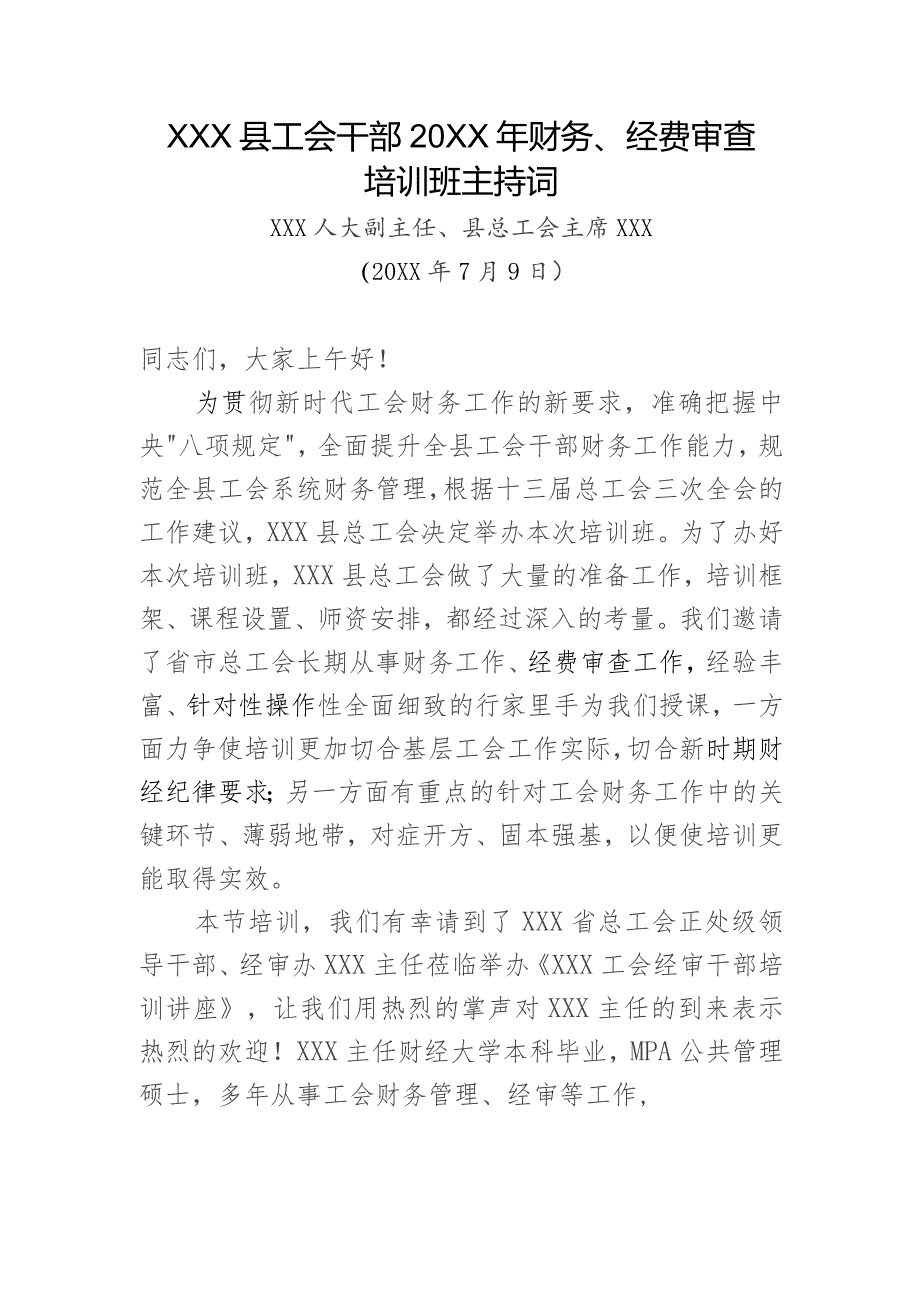 XXX县工会干部20XX年财务、经费审查
培训班主持词
XXX人大副主任、县总工会主席XXX
(20XX年7月9日）
同志们，大家上午好！
为贯彻新时代工会财务工作的新要求，准确把握中
央"八项规定"，全面提升全县工会干部财务工作能力，规
范全县工会系统财务管理，根据十三届总工会三次全会的
工作建议，XXX县总工会决定举办本次培训班。为了办好
本次培训班，XXX县总工会做了大量的准备工作，培训框
架、课程设置、师资安排，都经过深入的考量。我们邀请
了省市总工会长期从事财务工作、经费审查工作，经验丰
富、针对性操作性全面细致的行家里手为我们授课，一方
面力争使培训更加切合基层工会工作实际，切合新时期财
经纪律要求；另一方面有重点的针对工会财务工作中的关
键环节、薄弱地带，对症开方、固本强基，以便使培训更
能取得实效。
本节培训，我们有幸请到了XXX省总工会正处级领
导干部、经审办XXX主任莅临举办《XXX工会经审干部培
训讲座》，让我们用热烈的掌声对XXX主任的到来表示
热烈的欢迎！XXX主任财经大学本科毕业，MPA公共管理
硕士，多年从事工会财务管理、经审等工作，